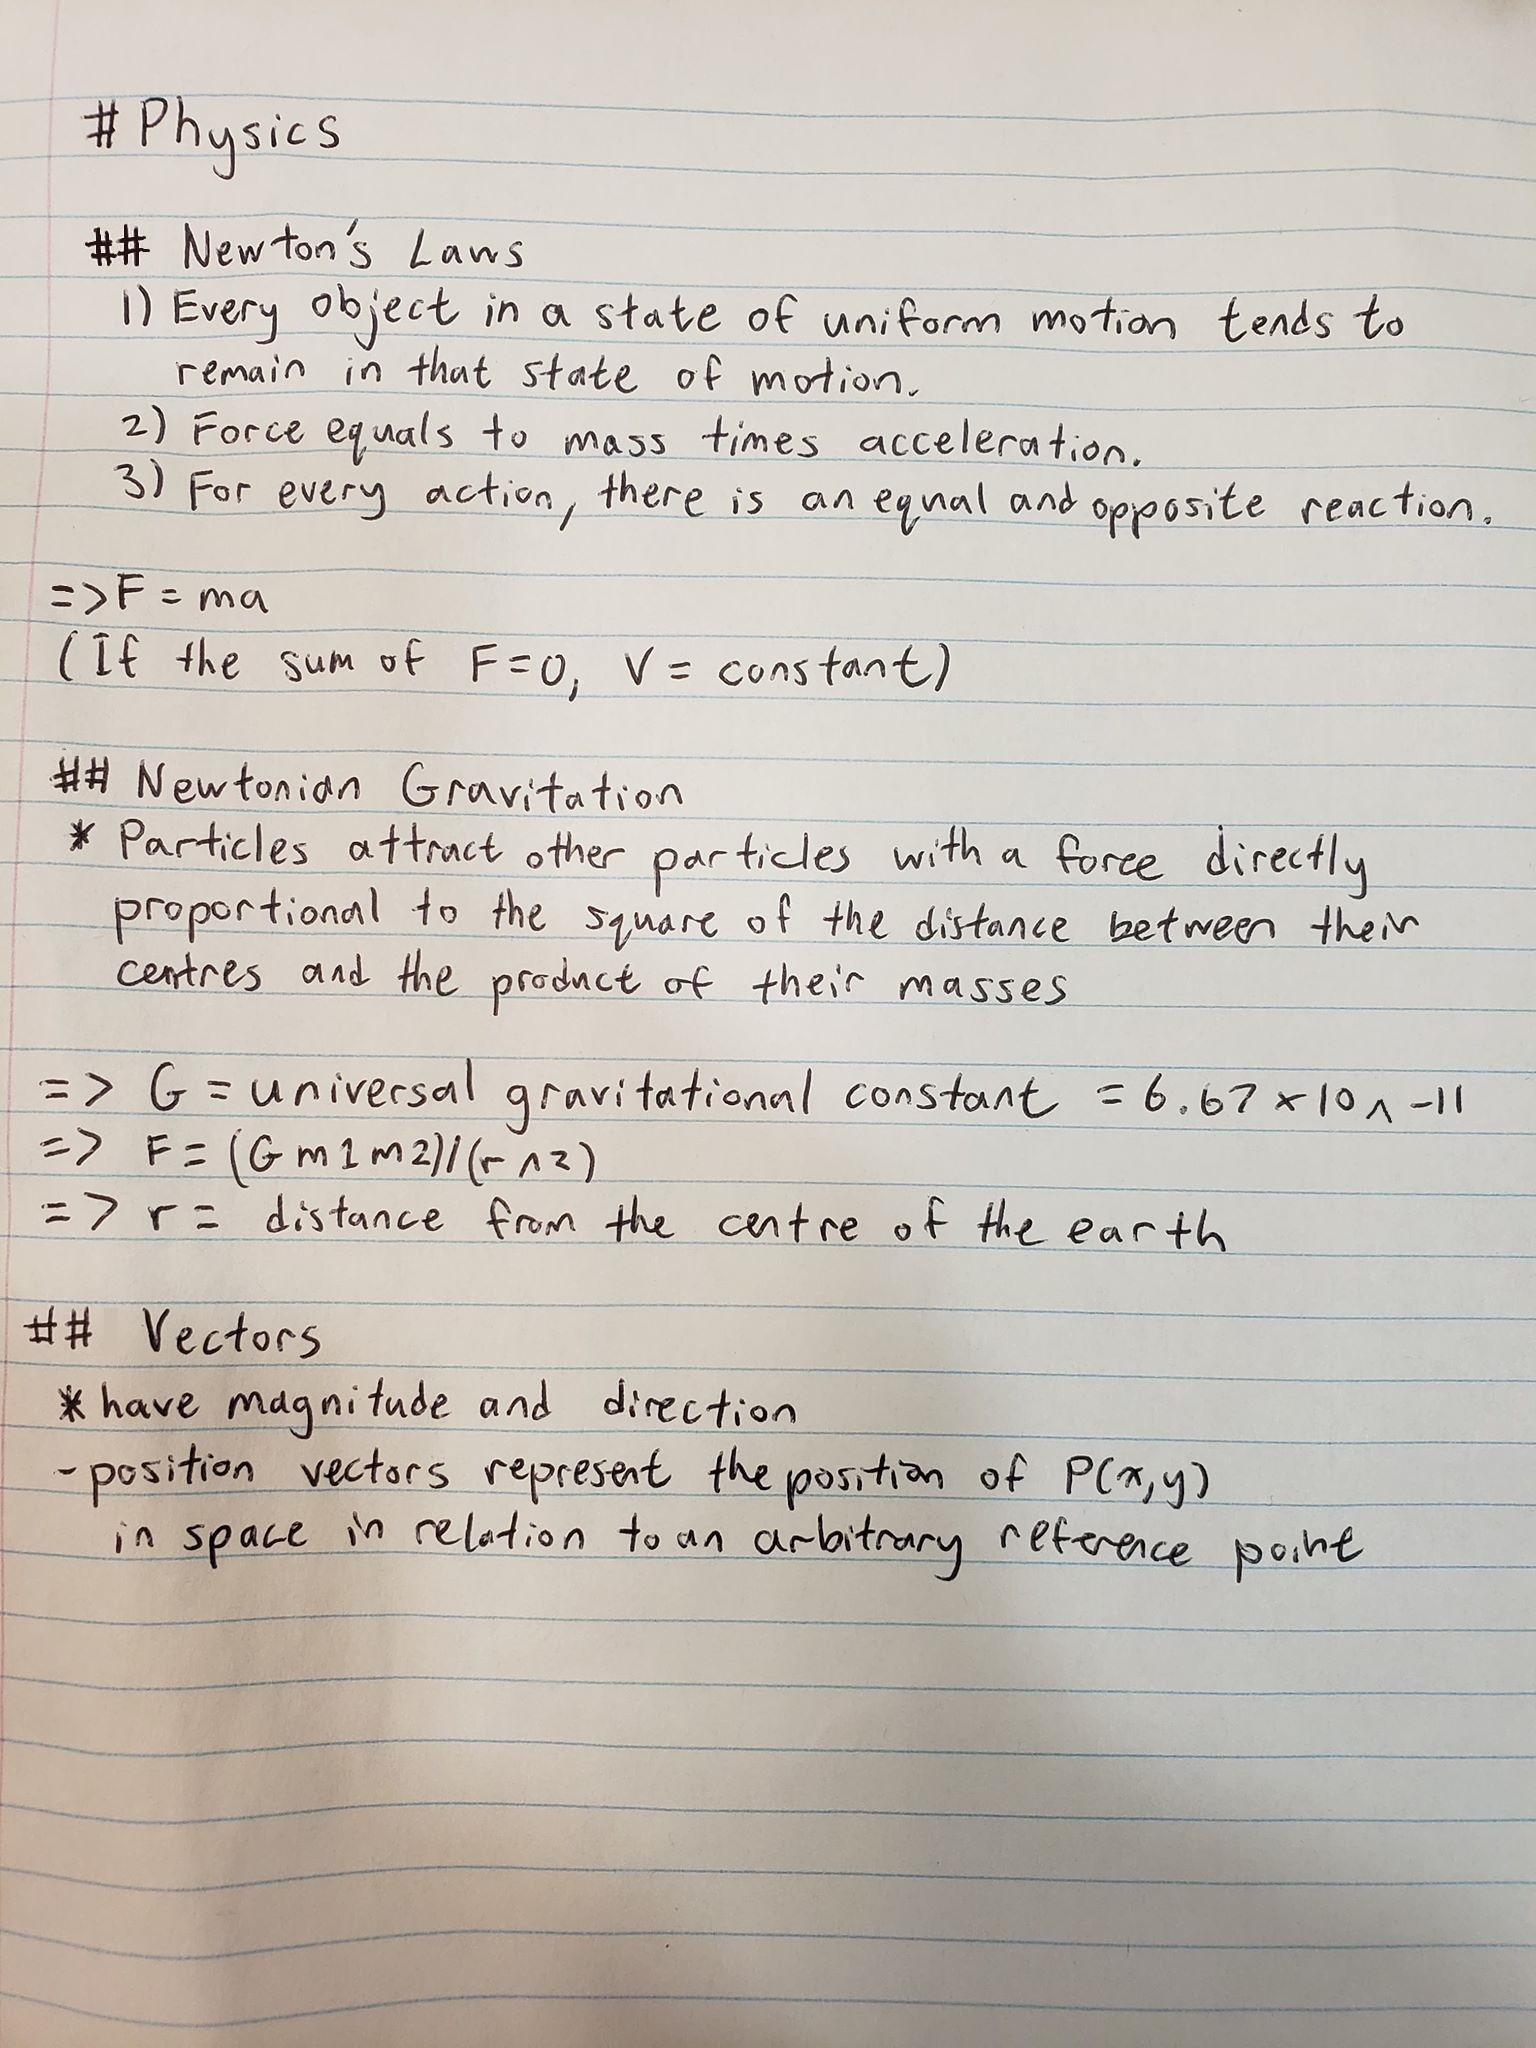 # Physics
## Newton's Laws
1) Every object in a state of uniform motion tends to
remain in that state of motion.
2) Force equals to mass times acceleration.
3) For every action, there is an equal and opposite reaction.
=> F = ma
(If the sum of F=0, V = constant)
## Newtonian Gravitation
* Particles attract other particles with a force directly
proportional to the square of the distance between their
centres and the product of their masses
=> G = universal gravitational constant = 6.67 x 10 ^ -11
=> F = (G m 1 m 2)/(r ^ 2)
=> r = distance from the centre of the earth
## Vectors
* have magnitude and direction
- position vectors represent the position of P(x,y)
in space in relation to an arbitrary reference point